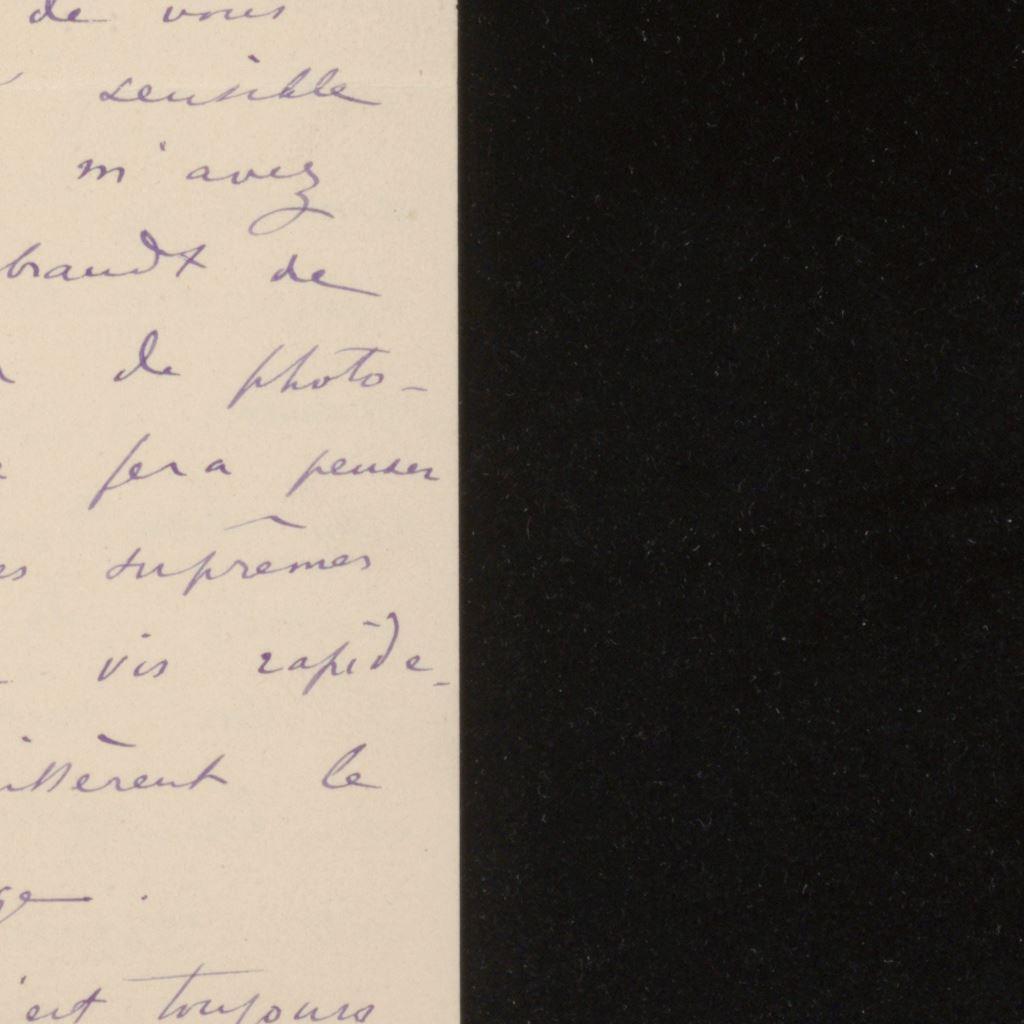 de vous
sensible
m'avez
brandt de
de photo-
fera penser
es suprêmes
vis rapide-
ittèrent le
ge.
'est toujours